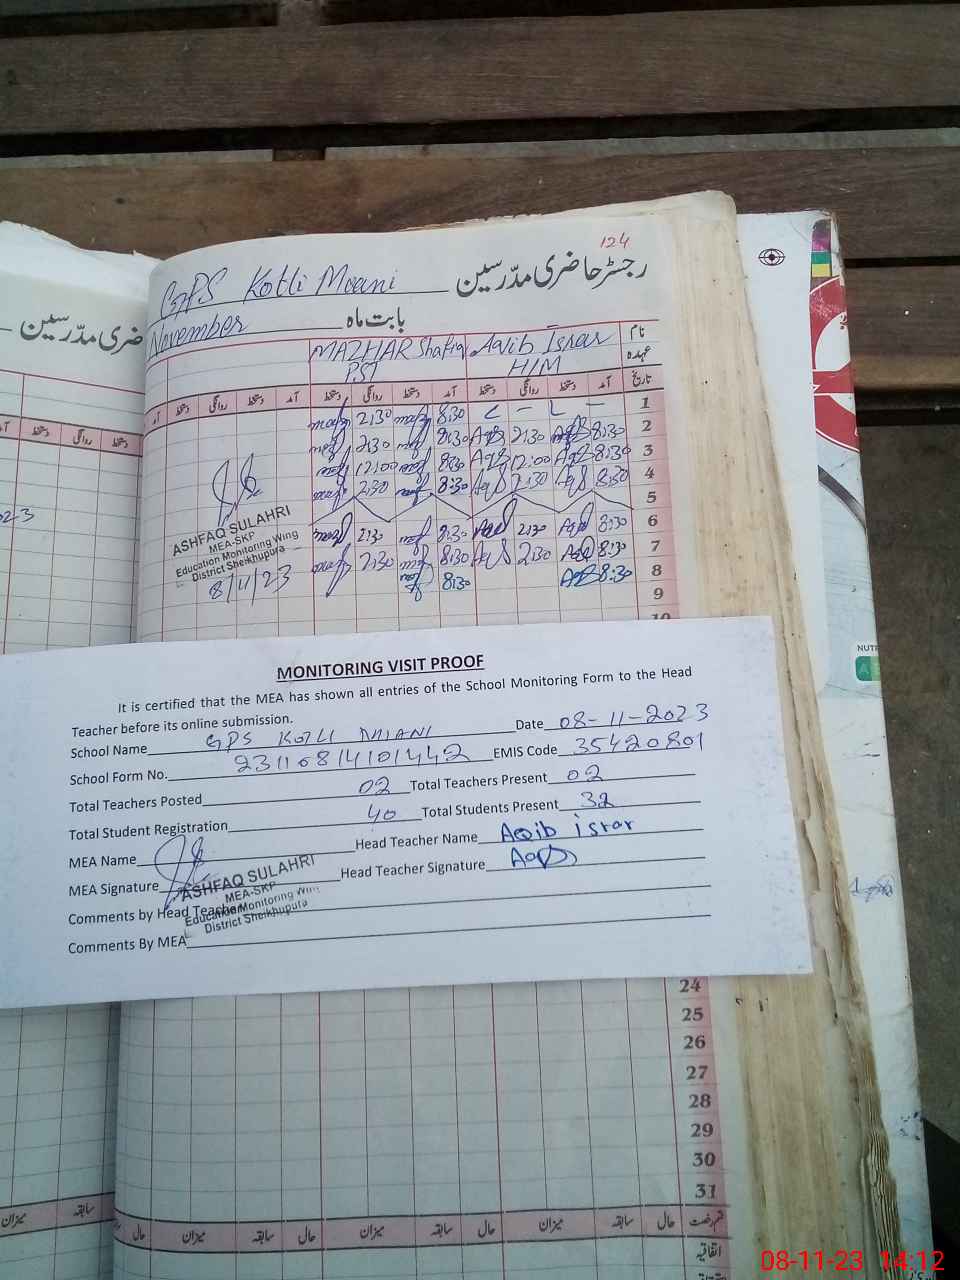 124
GPS Kotli Meani رجسٹر حاضری مدّرسین
November بابت ماہ
ضری مدّرسین
MAZHAR Shafiq Aqib Israr نام
PST H/M عہدہ
آمد دستخط روانگی دستخط آمد دستخط روانگی دستخط آمد تاریخ
2:30 8:30 L - L - 1
2:30 8:30 2:30 8:30 2
12:00 8:30 12:00 8:30 3
2:30 8:30 2:30 8:30 4
5
2:30 8:30 2:30 8:30 6
2:30 8:30 2:30 8:30 7
8:30 8:30 8
9
10
ASHFAQ SULAHRI
MEA-SKP
Education Monitoring Wing
District Sheikhupura
8/11/23
MONITORING VISIT PROOF
It is certified that the MEA has shown all entries of the School Monitoring Form to the Head
Teacher before its online submission.
School Name GPS KOTLI MIANI Date 08-11-2023
School Form No. 23110814101442 EMIS Code 35420801
Total Teachers Posted 02 Total Teachers Present 02
Total Student Registration 40 Total Students Present 32
MEA Name Head Teacher Name Aqib israr
MEA Signature Head Teacher Signature
ASHFAQ SULAHRI
MEA-SKP
Education Monitoring Wing
District Sheikhupura
Comments by Head Teacher
Comments By MEA
24
25
26
27
28
29
30
31
میزان سابقہ حال میزان سابقہ حال میزان سابقہ حال میزان سابقہ حال
اتفاقیہ
NUTR
08-11-23 14:12